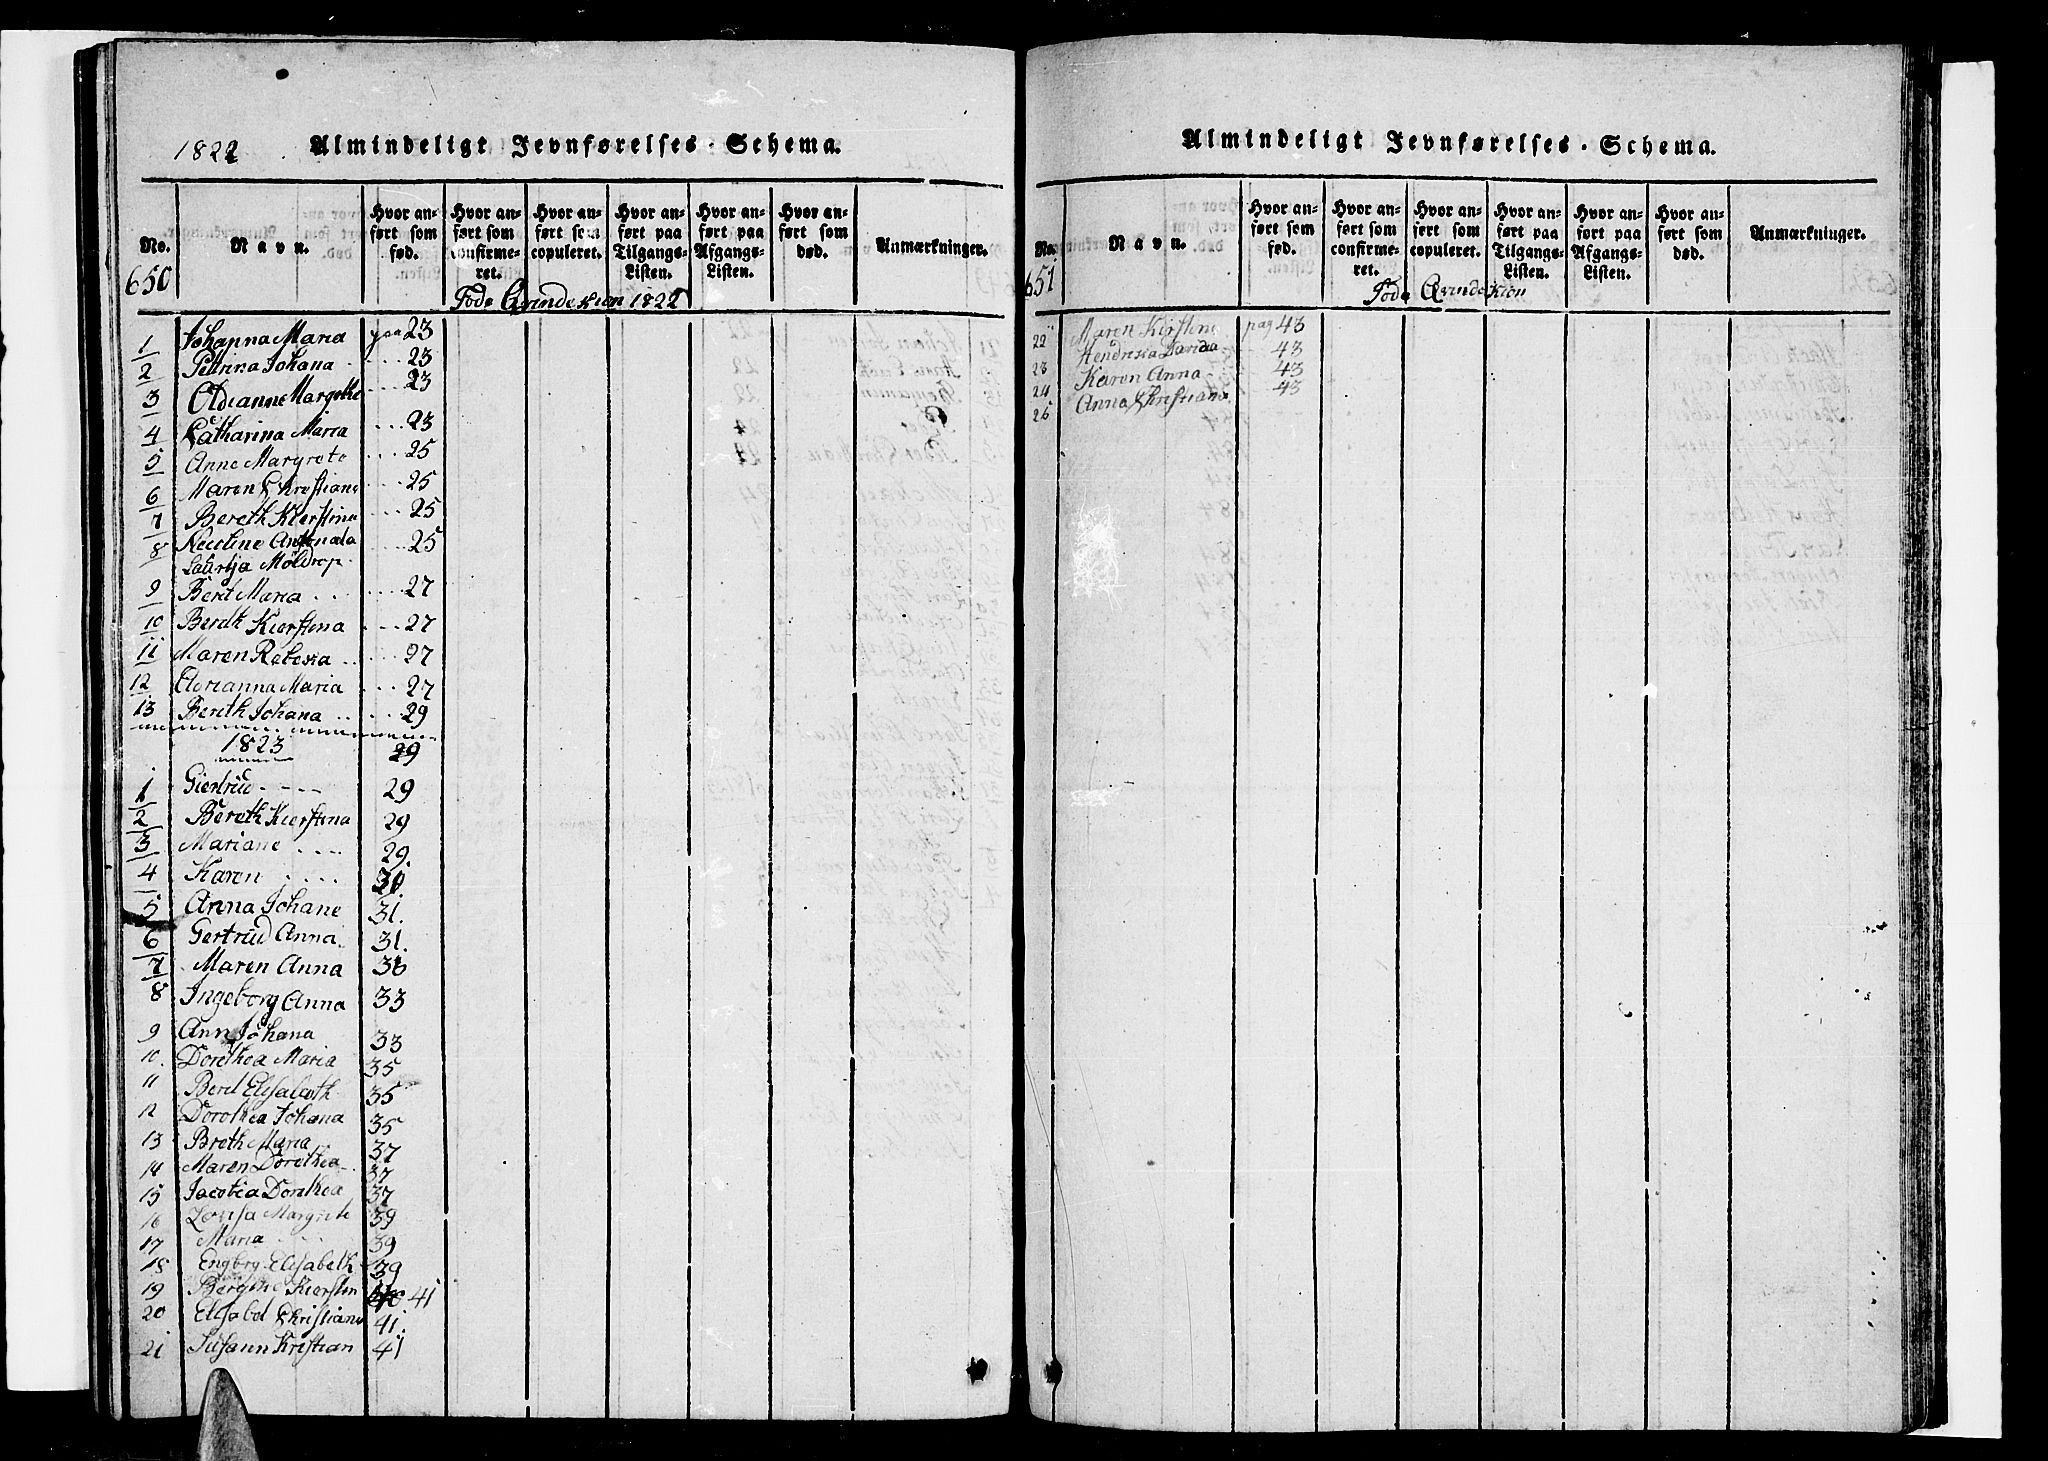 1822 Almindeligt Jevnførelses-Schema.
No. Navn. Hvor anført som fød. Hvor anført som confirmeret. Hvor anført som copuleret. Hvor anført paa Tilgangs-Listen. Hvor anført paa Afgangs-Listen. Hvor anført som død. Anmærkninger.
650 Føde Qvindekiøn 1822
1 Johanna Maria paa 23
2 Petrina Johana 23
3 Oldianne Margrethe 23
4 Catharina Maria 23
5 Anne Margrete 25
6 Maren Christiane 25
7 Bereth Kierstina 25
8 Nicoline Antonata 25
Lauritja Møldrop
9 Berit Maria 27
10 Bereth Kierstina 27
11 Maren Rebeka 27
12 Adrianna Maria 27
13 Bereth Johana 29
1823 29
1 Giertrud 29
2 Bereth Kierstina 29
3 Mariane 29.
4 Karen 31
5 Anna Johane 31.
6 Gertrud Anna 31.
7 Maren Anna 33
8 Ingeborg Anna 33
9 Ann Johana 33
10. Dorethea Maria 35
11 Beret Elisabeth 35
12 Dorothea Johana 35
13 Breth Maria 37
14 Maren Dorethea 37
15 Jacobia Dorethea 37
16 Lovisa Margrete 39
17 Maria 39
18 Engbrg Elisabeth 39
19 Kiersten 41
20 Elisabet Christiane 41.
21 Susann Kristian 41
Almindeligt Jevnførelses-Schema.
No. Navn. Hvor anført som fød. Hvor anført som confirmeret. Hvor anført som copuleret. Hvor anført paa Tilgangs-Listen. Hvor anført paa Afgangs-Listen. Hvor anført som død. Anmærkninger.
651 Føde Qvindekiøn
22 Maren Kirstine pag 43
23 Hendrikia Davida 43
24 Karen Anna 43
25 Anna Christiane 43